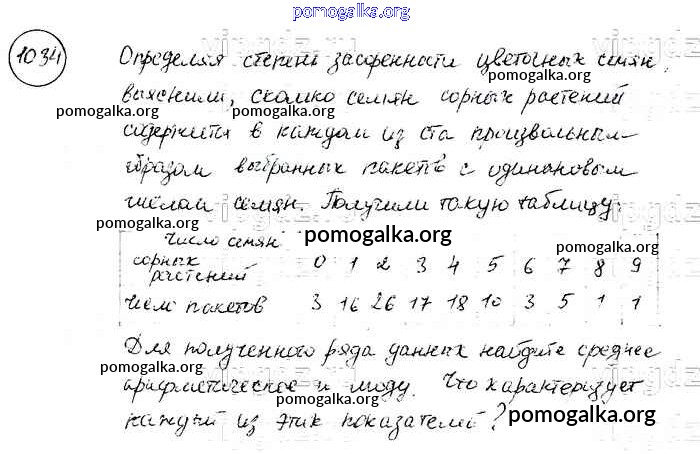 pomogalka.org
1034
Определяя степень засоренности цветочных семян,
выяснили, сколько семян сорных растений
pomogalka.org pomogalka.org
содержится в каждом из ста произвольным
образом выбранных пакетов с одинаковым
pomogalka.org
числом семян. Получили такую таблицу:
pomogalka.org
Число семян
сорных
растений 0 1 2 3 4 5 6 7 8 9
pomogalka.org pomogalka.org
Число пакетов 3 16 26 17 18 10 3 5 1 1
Для полученного ряда данных найдите среднее
pomogalka.org pomogalka.org
арифметическое и моду. Что характеризует
каждый из этих показателей?
pomogalka.org